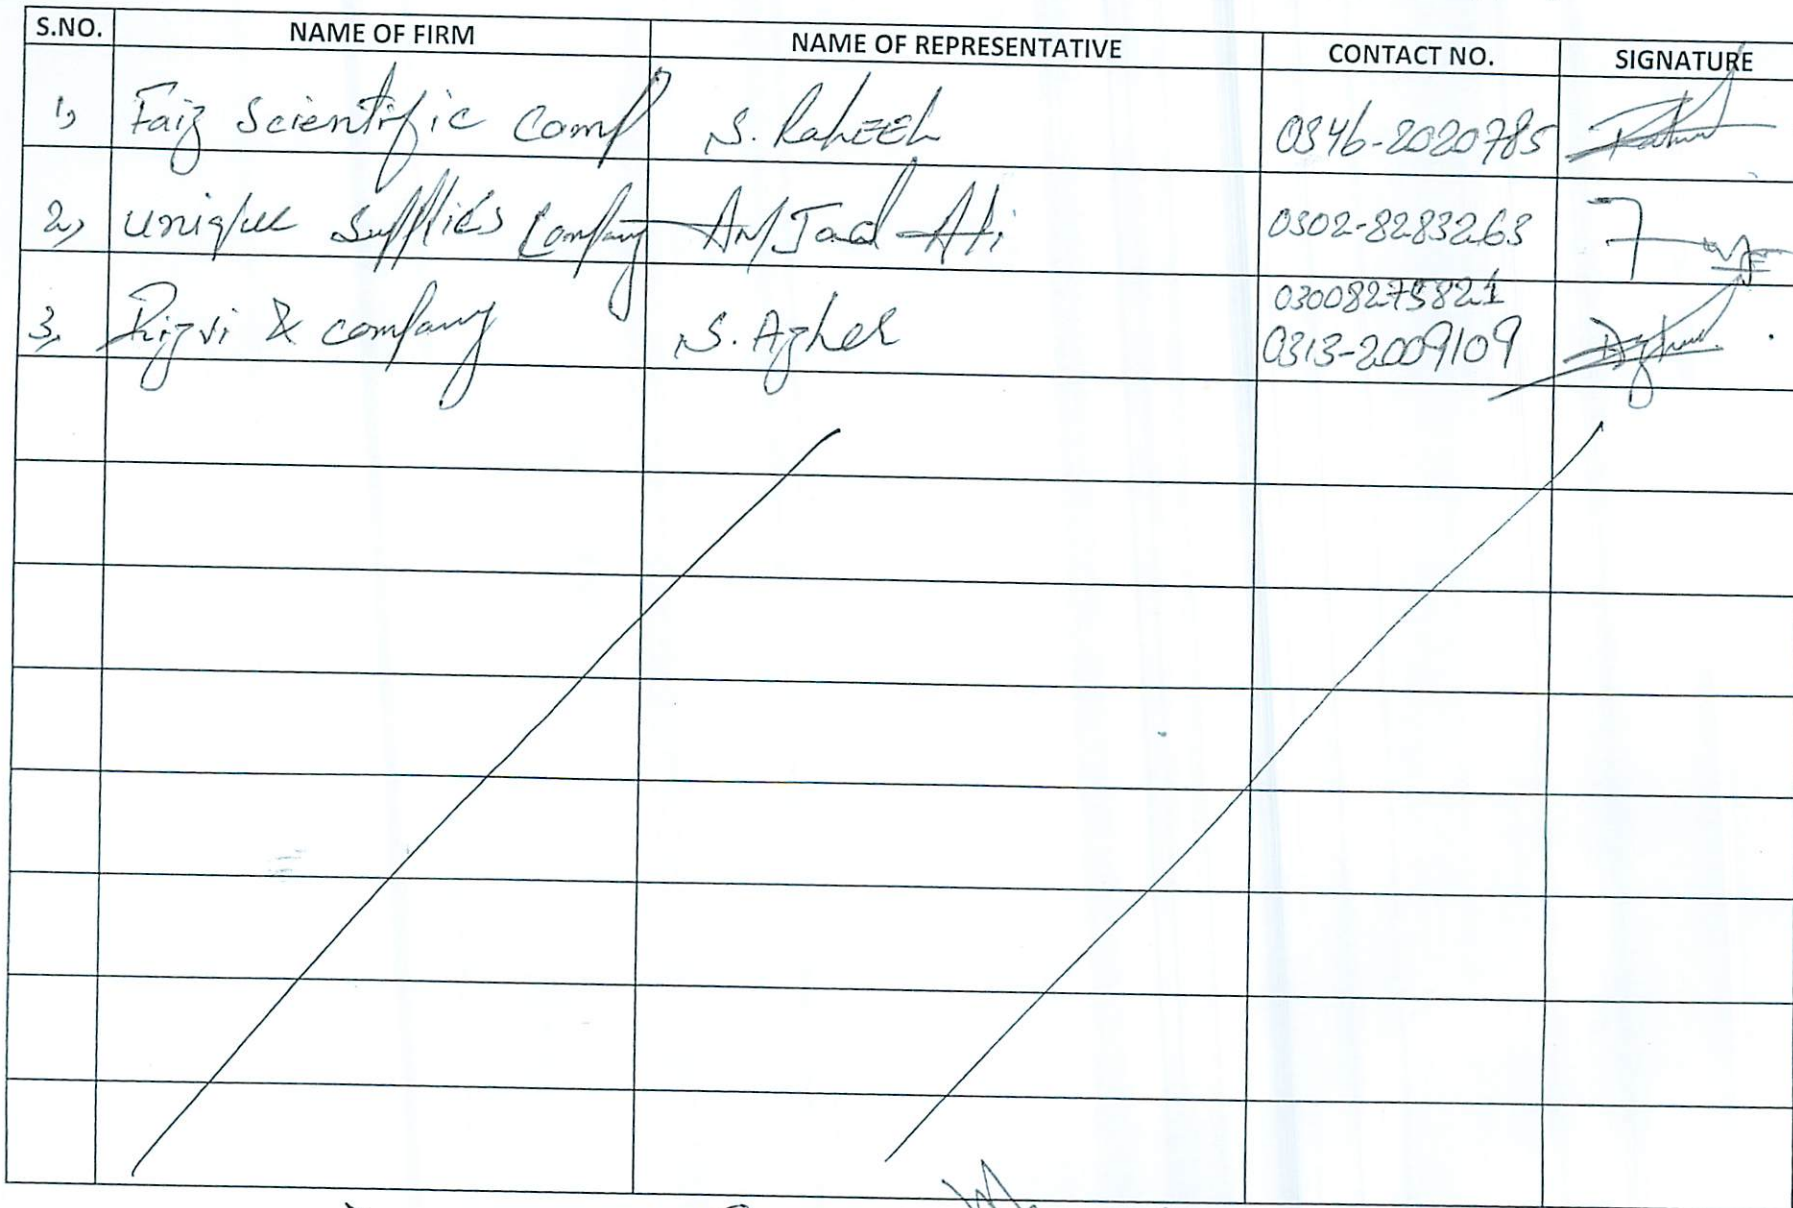 S.NO. NAME OF FIRM NAME OF REPRESENTATIVE CONTACT NO. SIGNATURE
1, Faiz Scientific Comp S. RahEEL 0346-2020785
2, unique Supplies Company AmJad Ali 0302-8283263
03008275821
3, Rizvi & company S. Azher 0313-2009109